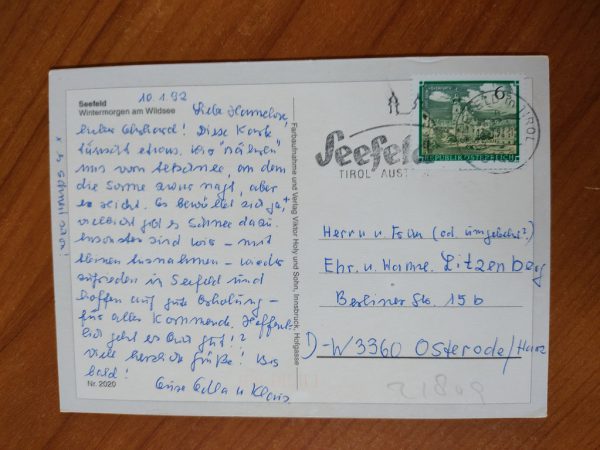 Seefeld
Wintermorgen am Wildsee
10.1.92
Liebe Hannelore,
lieber Ehrhard! Diese Karte
täuscht etwas. Wir "nähren"
uns vom letzten, an dem
die Sonne zwar nagt, aber
es reicht. Es bewölkt sich ja,+
vielleicht gibt es Schnee dazu.
Ansonsten sind wir – mit
kleinen Ausnahmen – wieder
zufrieden in Seefeld und
hoffen auf gute Erholung –
für alles Kommende. Hoffent-
lich geht es Euch gut!?
Viele herzliche Grüße! Bis
bald!
Eure Edla u Klaus
+ es schneit 22.00!
Nr. 2020
Farbaufnahme und Verlag Viktor Holy und Sohn, Innsbruck, Hofgasse
Seefeld
TIROL AUST
6
REPUBLIK ÖSTERREICH
TIROL
Herrn u. Frau (od. umgekehrt?)
Ehr. u. Hanne. Litzenberg
Berliner Str. 15b
D-W3360 Osterode/Harz